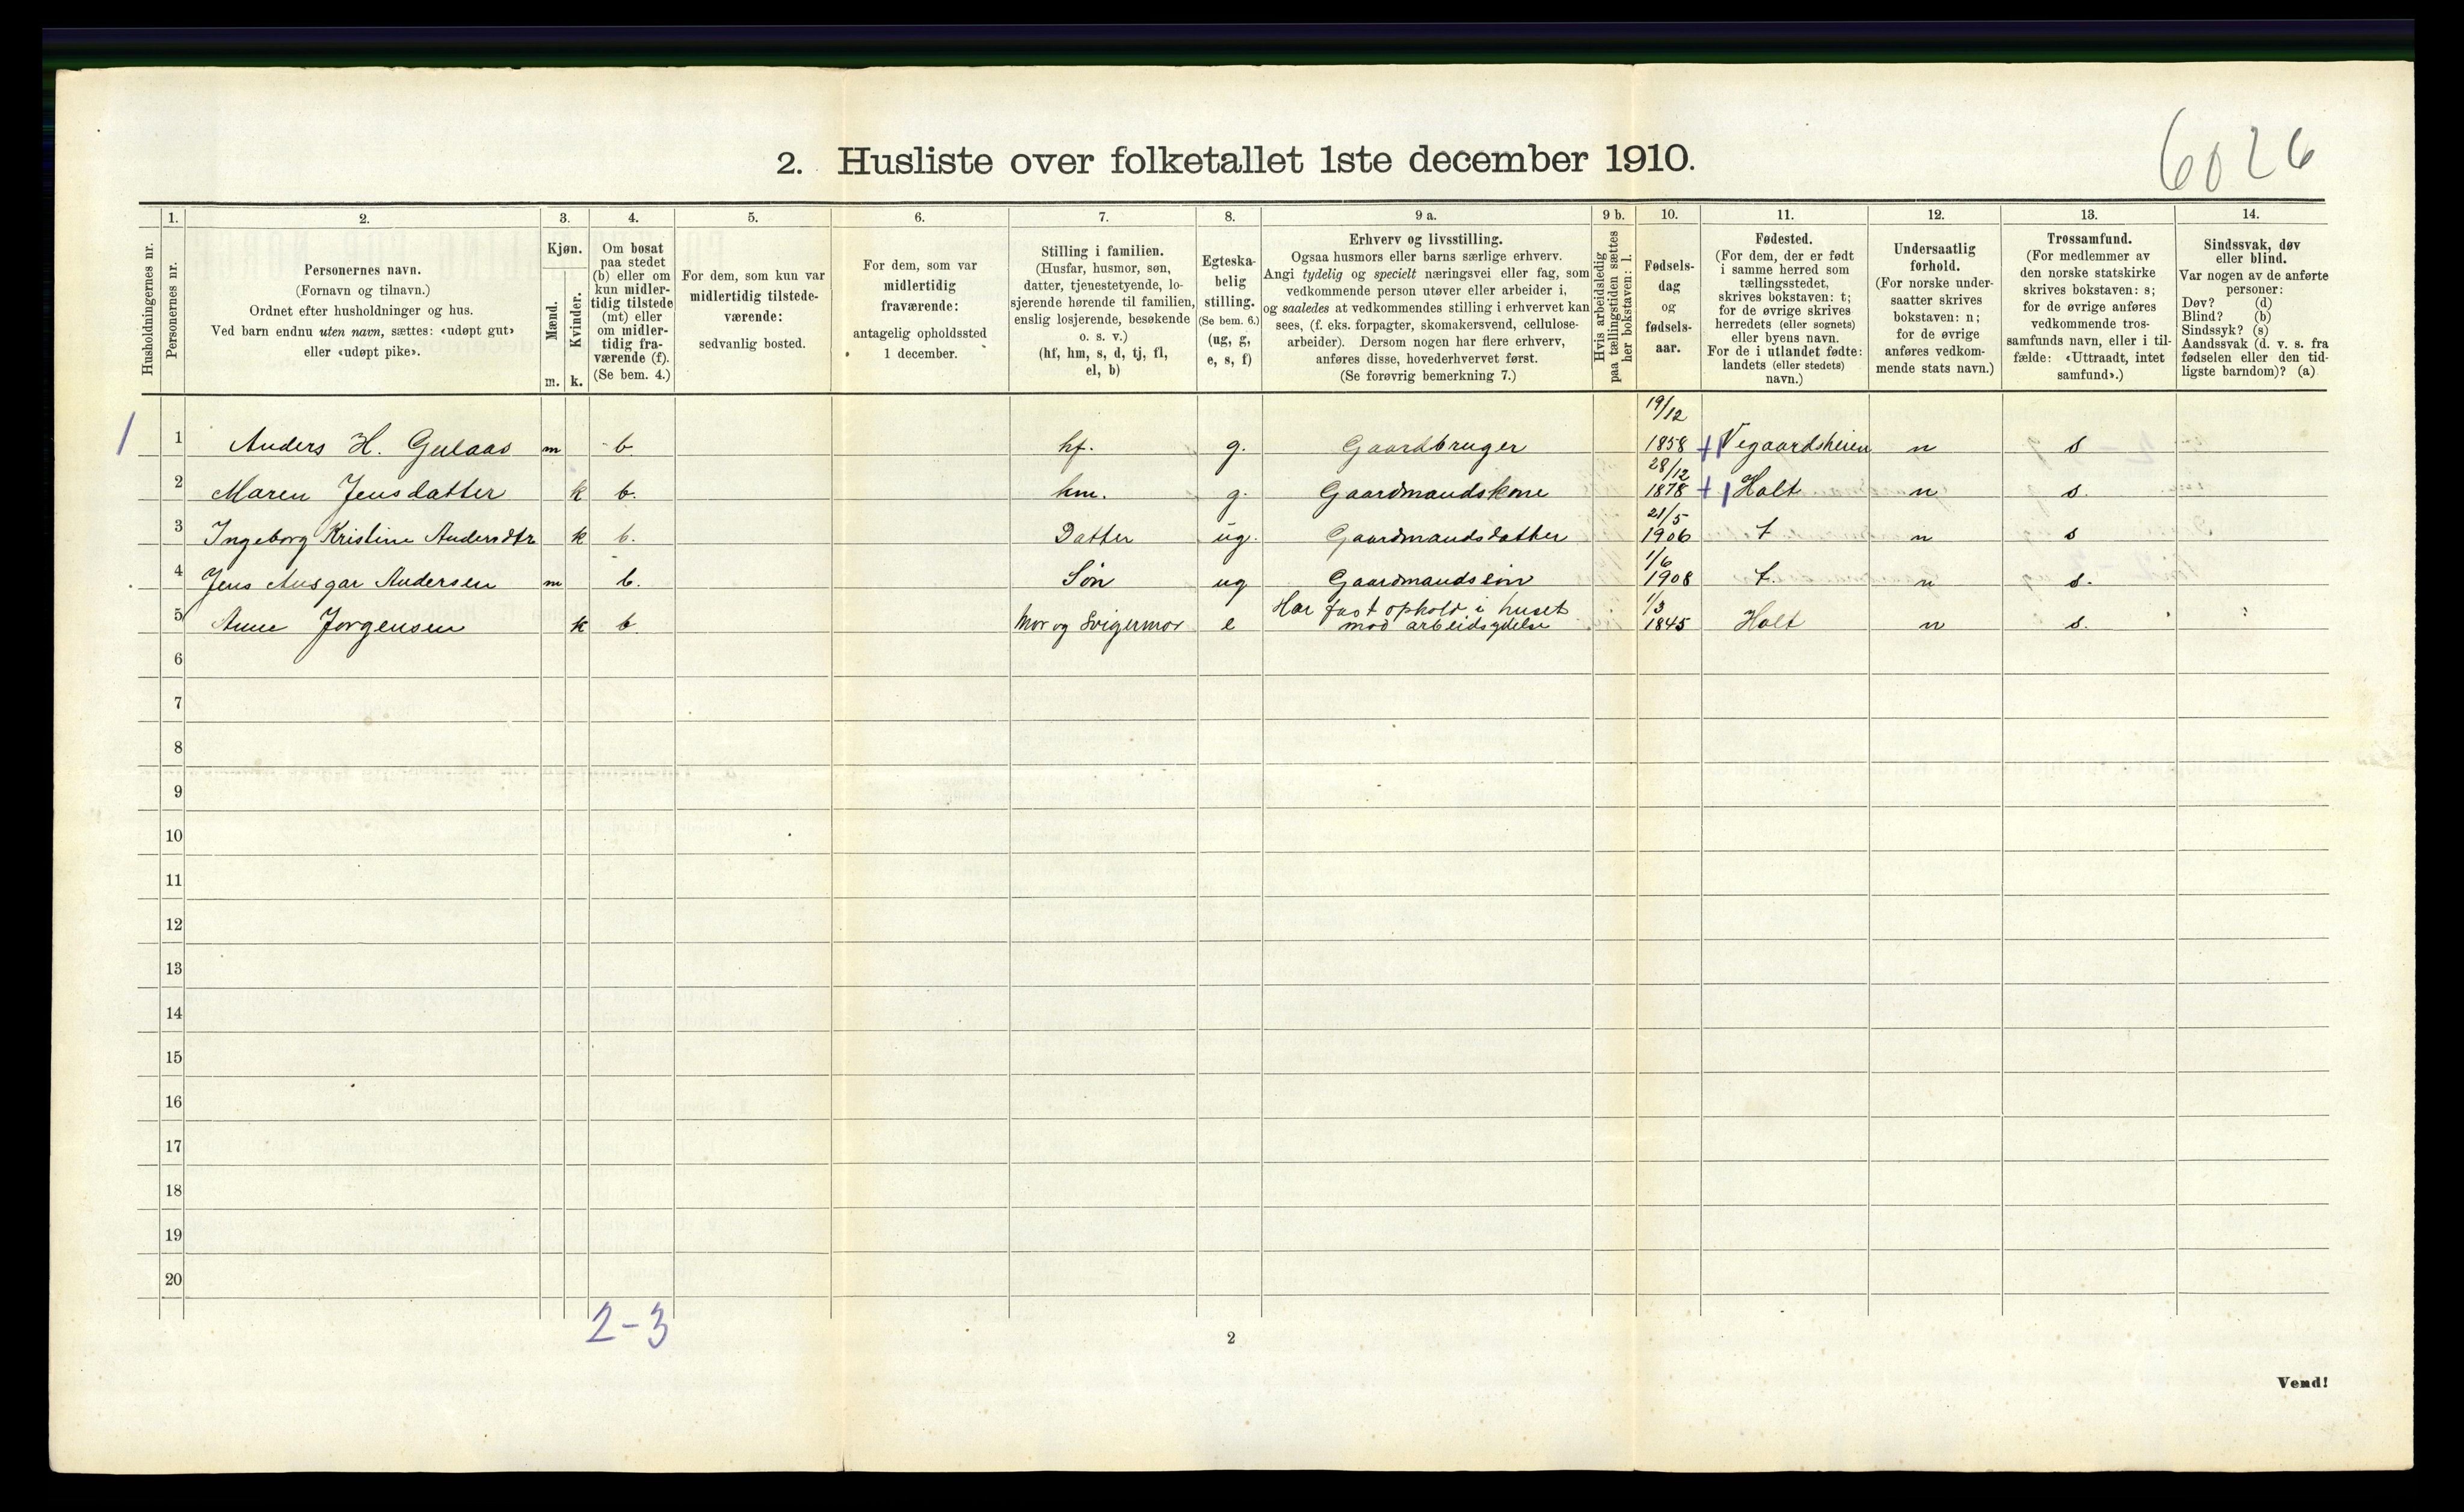 6026
2. Husliste over folketallet 1ste december 1910.
Husholdningernes nr.
1.
Personernes nr.
2.
Personernes navn.
(Fornavn og tilnavn.)
Ordnet efter husholdninger og hus.
Ved barn endnu uten navn, sættes: «udøpt gut»
eller «udøpt pike».
3.
Kjøn.
Mænd.
Kvinder.
m. k.
4.
Om bosat
paa stedet
(b) eller om
kun midler-
tidig tilstede
(mt) eller
om midler-
tidig fra-
værende (f).
(Se bem. 4.)
5.
For dem, som kun var
midlertidig tilstede-
værende:
sedvanlig bosted.
6.
For dem, som var
midlertidig
fraværende:
antagelig opholdssted
1 december.
7.
Stilling i familien.
(Husfar, husmor, søn,
datter, tjenestetyende, lo-
sjerende hørende til familien,
enslig losjerende, besøkende
o. s. v.)
(hf, hm, s, d, tj, fl,
el, b)
8.
Egteska-
belig
stilling.
(Se bem. 6.)
(ug, g,
e, s, f)
9 a.
Erhverv og livsstilling.
Ogsaa husmors eller barns særlige erhverv.
Angi tydelig og specielt næringsvei eller fag, som
vedkommende person utøver eller arbeider i,
og saaledes at vedkommendes stilling i erhvervet kan
sees, (f. eks. forpagter, skomakersvend, cellulose-
arbeider). Dersom nogen har flere erhverv,
anføres disse, hovederhvervet først.
(Se forøvrig bemerkning 7.)
9 b.
Hvis arbeidsledig
paa tællingstiden sættes
her bokstaven: l.
10.
Fødsels-
dag
og
fødsels-
aar.
11.
Fødested.
(For dem, der er født
i samme herred som
tællingsstedet,
skrives bokstaven: t;
for de øvrige skrives
herredets (eller sognets)
eller byens navn.
For de i utlandet fødte:
landets (eller stedets)
navn.)
12.
Undersaatlig
forhold.
(For norske under-
saatter skrives
bokstaven: n;
for de øvrige
anføres vedkom-
mende stats navn.)
13.
Trossamfund.
(For medlemmer av
den norske statskirke
skrives bokstaven: s;
for de øvrige anføres
vedkommende tros-
samfunds navn, eller i til-
fælde: «Uttraadt, intet
samfund».)
14.
Sindssvak, døv
eller blind.
Var nogen av de anførte
personer:
Døv? (d)
Blind? (b)
Sindssyk? (s)
Aandssvak (d. v. s. fra
fødselen eller den tid-
ligste barndom)? (a)
1 1 Anders H. Gulaas m b. hf. g. Gaardbruger 19/12 1858 + Vegaardsheien n s
2 Maren Jensdatter k b. hm. g. Gaardmandskone 28/12 1878 + Holt n s.
3 Ingeborg Kristine Andersdtr k b. Datter ug. Gaardmandsdatter 21/5 1906 t n s
4 Jens Ansgar Andersen m b. Søn ug Gaardmandssøn 1/6 1908 t. n s.
5 Anne Jorgensen k b. Mor og Svigermor e Har fast ophold i huset
mod arbeidsydelse 1/3 1845 Holt n s.
6
7
8
9
10
11
12
13
14
15
16
17
18
19
20
2-3
2
Vend!